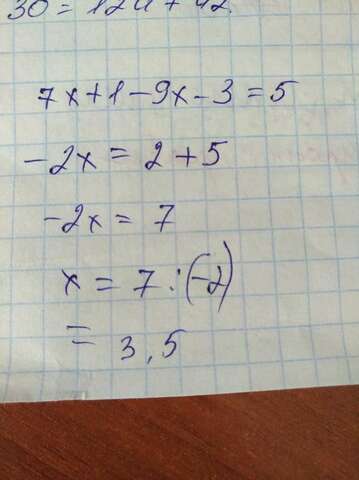 30 = 12u + 42.
7x+1-9x-3=5
-2x = 2+5
-2x = 7
x = 7:(-2)
= 3,5